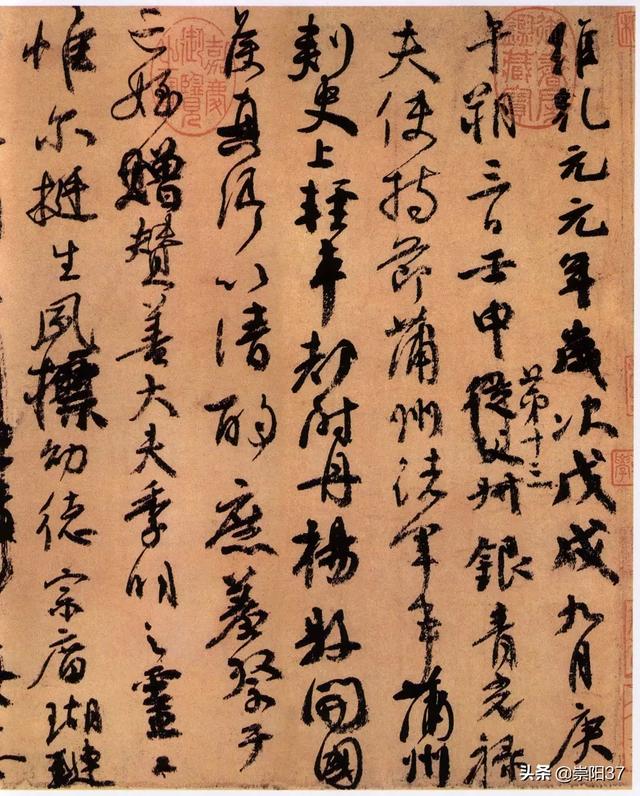 維乾元元年歲次戊戌九月庚
午朔三日壬申第十三從父叔銀青光祿
夫使持節蒲州諸軍事蒲州
刺史上輕車都尉丹楊縣開國
侯真卿以清酌庶羞祭于
亡姪贈贊善大夫季明之靈曰
惟爾挺生夙標幼德宗廟瑚璉
嘉慶御覽之寶
头条 @崇阳37